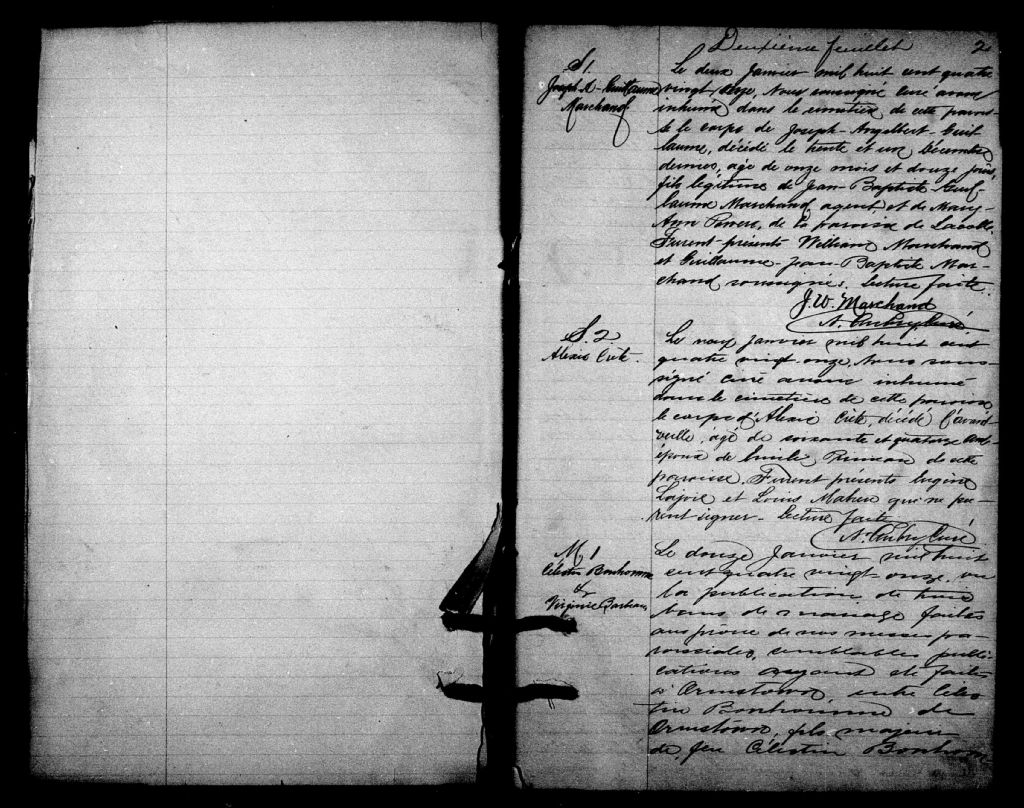 Deuxième feuillet 2
S. 1.
Joseph A- Guillaume
Marchand
Le deux Janvier mil huit cent quatre
vingt onze, Nous soussigné curé avons
inhumé dans le cimetière de cette parois-
se le corps de Joseph- Anjelbert- Guil
laume, décédé le trente et un Décembre
dernier, agé de onze mois et douze jours,
fils légitime de Jean- Baptiste- Guil-
laume Marchand, agent, et de Mary-
Ann Powers, de la paroisse de Lacolle.
Furent présents William Marchand
et Guillaume- Jean- Baptiste Mar-
chand soussignés. Lecture faite.
J. W. Marchand
A. Aubry Curé.
S. 2
Alexis Crête.
Le neuf Janvier mil huit cent
quatre vingt onze, Nous sous-
signé curé avons inhumé
dans le cimetière de cette paroisse
le corps d'Alexis Crête, décédé l'avant
veille, agé de soixante et quatorze ans
époux de Emilie de cette
paroisse. Furent présents Eugène
Lajoie et Louis Maheu qui ne pu-
rent signer- Lecture faite
A. Aubry Curé
M. 1
Célestin Bonhomme
&
Virginie
Le douze Janvier mil huit
cent quatre vingt- onze, vu
la publication de trois
bans de mariage faites
aux prône de nos messes pa-
roissiales, semblables publi-
cations ayant été faites
à Ormstown, entre Céles-
tin Bonhomme de
Ormstown, fils majeur
de feu Célestin Bonhom